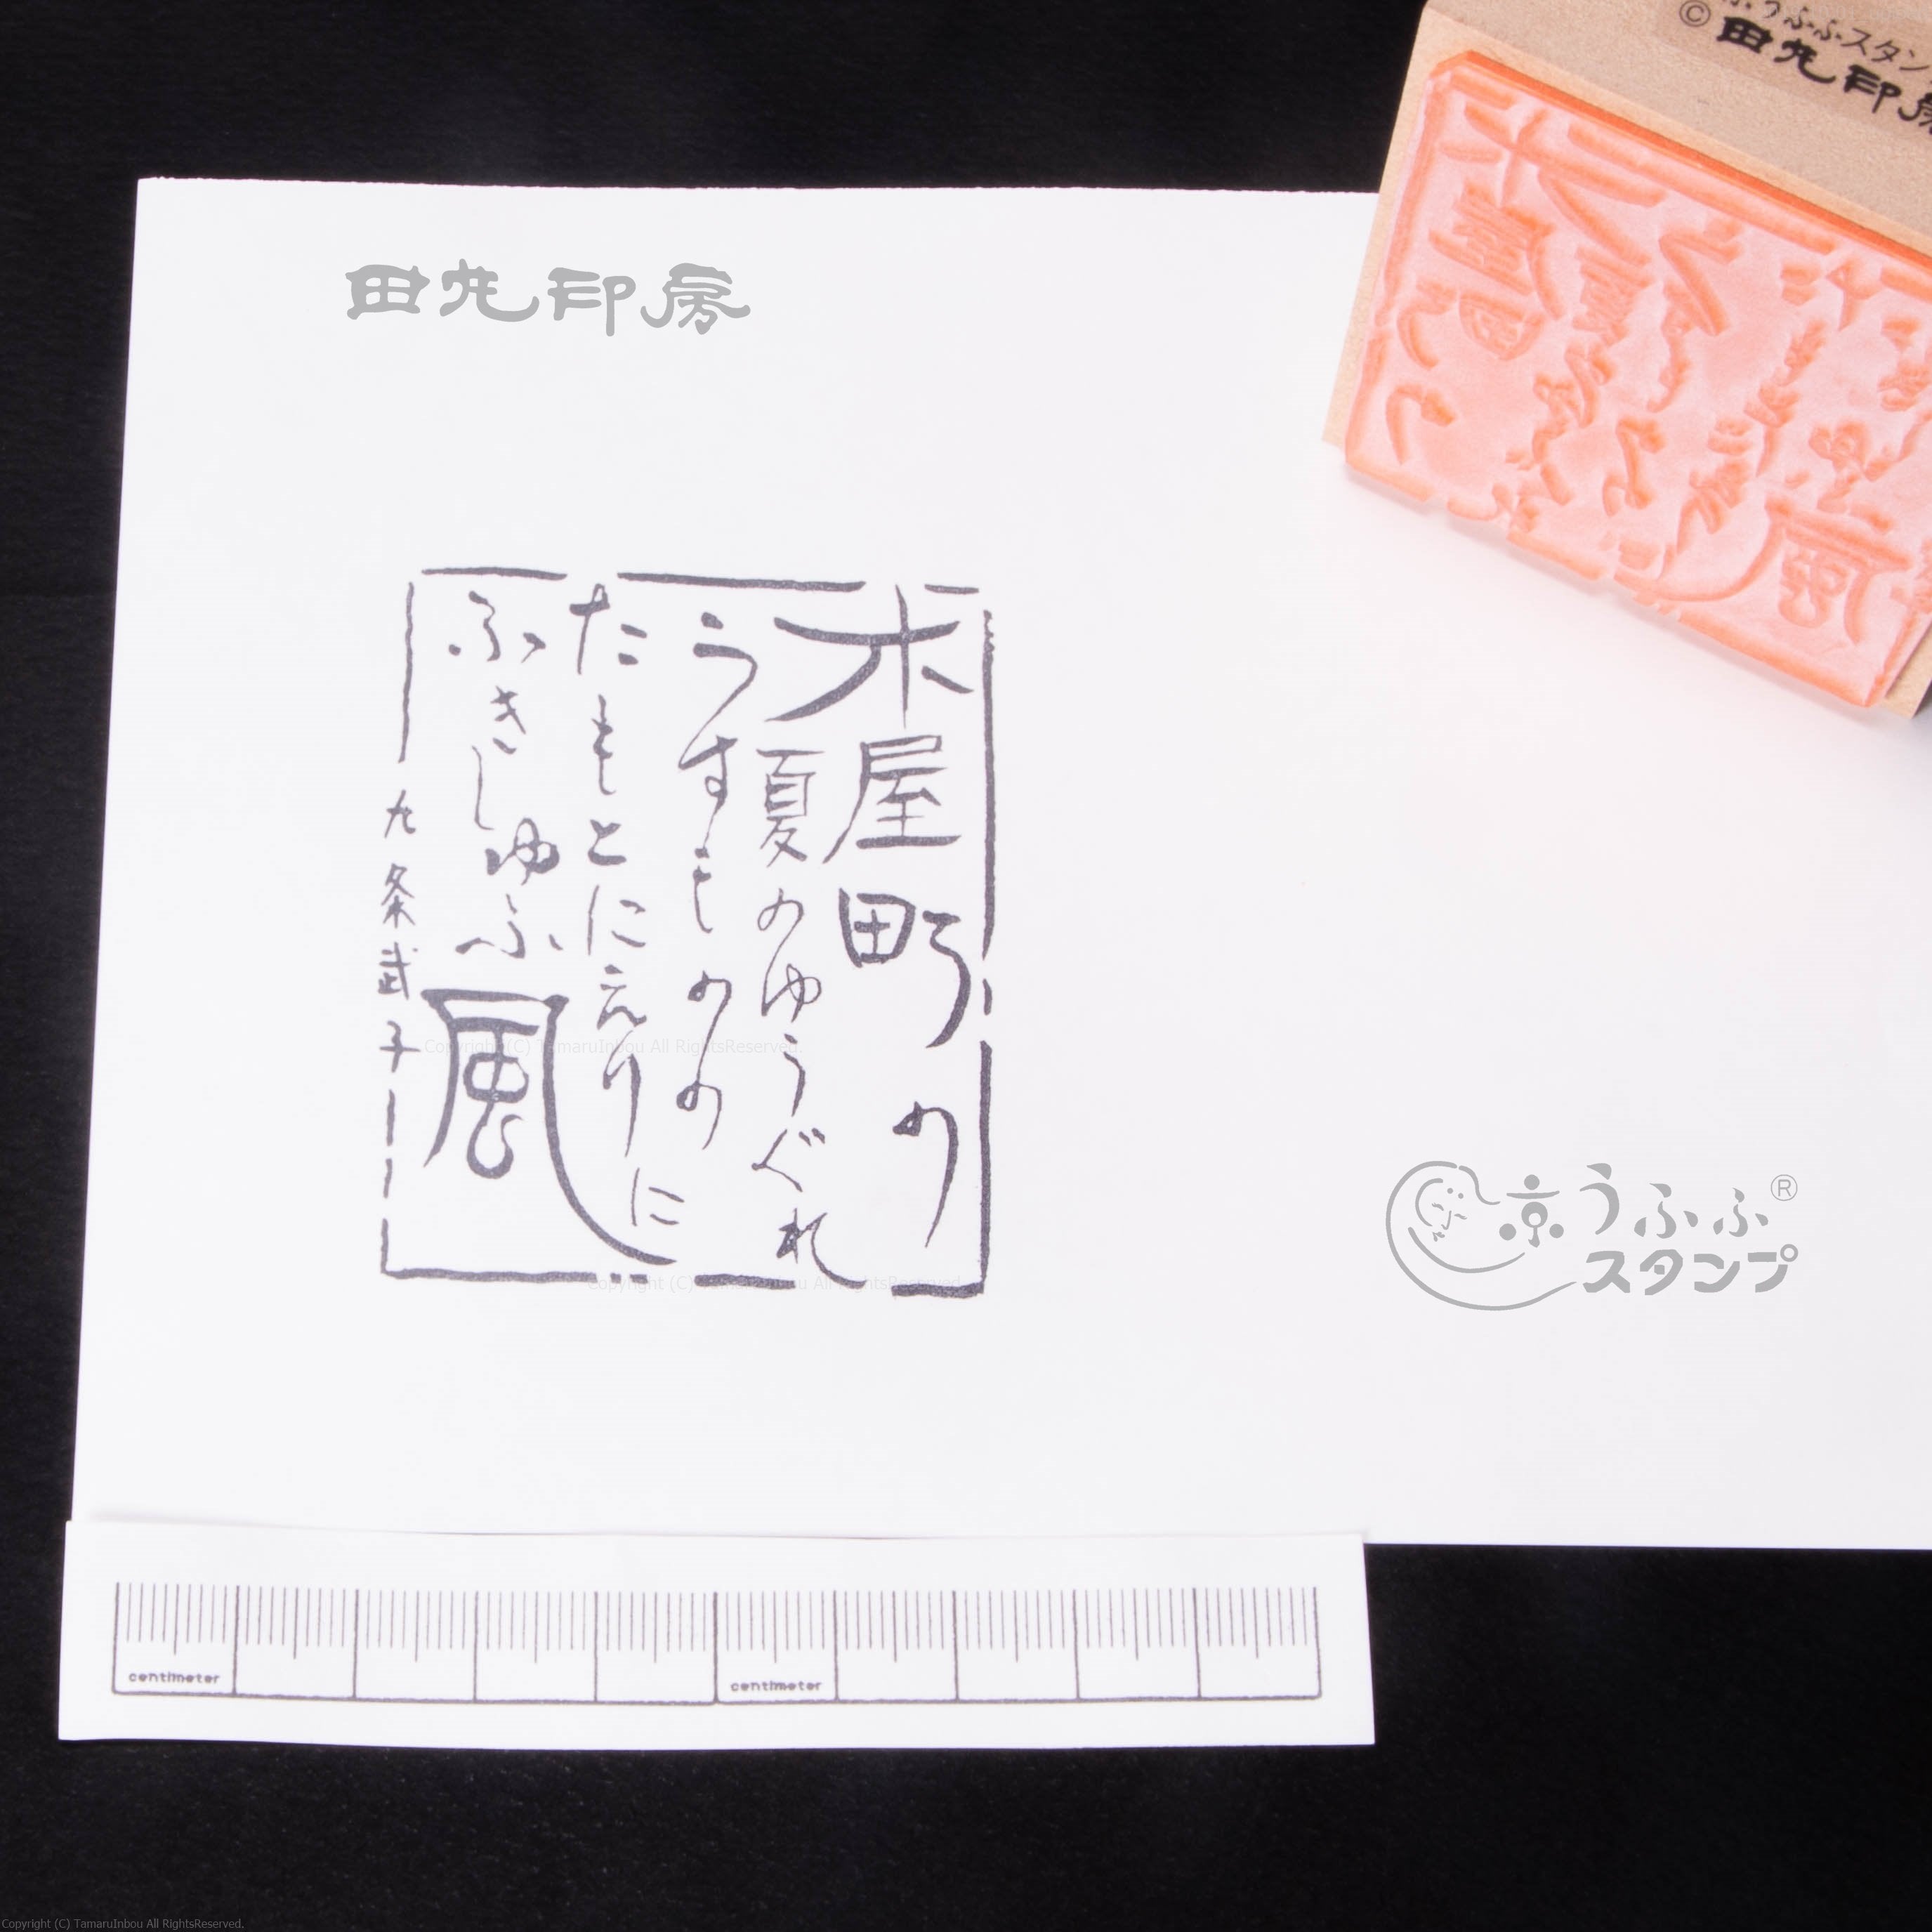 うふふスタン
© 田丸印房
田丸印房
木屋町の
夏のゆうぐれ
うすものの
たもとにえりに
ふきしゆふ風
九条武子
Copyright (C) TamaruInbou All RightsReserved.
Copyright (C) TamaruInbou All RightsReserved.
京うふふ®
スタンプ
centimeter
centimeter
Copyright (C) TamaruInbou All RightsReserved.